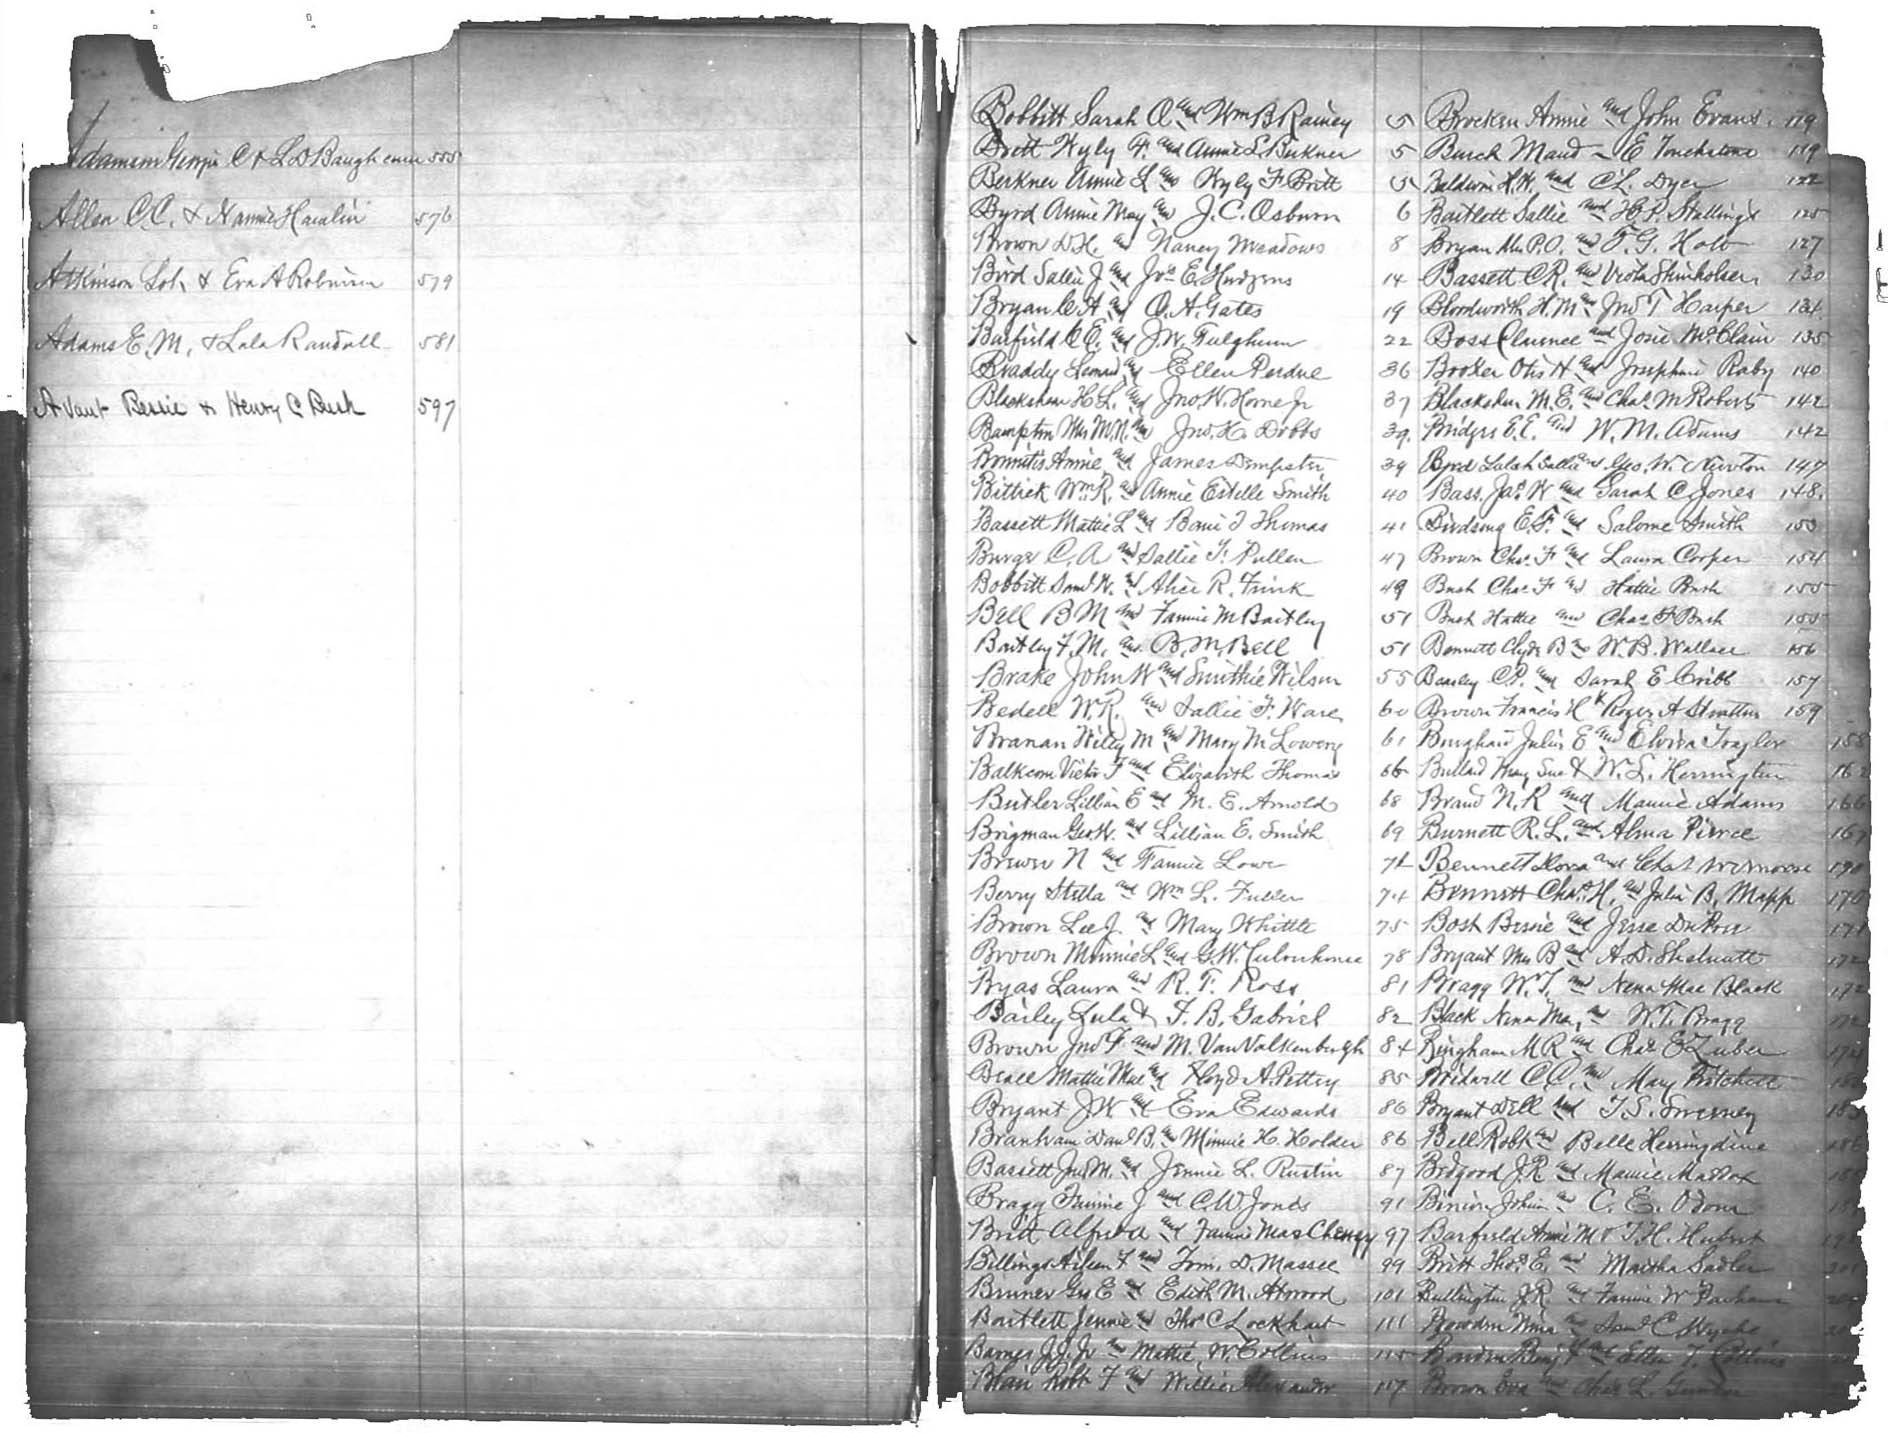 Adamson Georgia C & L D Baugh 555
Allen C.C. & Nannie Hamlin 576
Atkinson Lot. & Eva A Robinson 579
Adams E. M. & Lala Randall 581
Avant Bessie & Henry C Bush 597
Bobbitt Sarah C and Wm B Rainey 5
Britt Wyly F. and Annie L Berkner 5
Berkner Annie L and Wyly F Britt 5
Byrd Annie May and J. C. Osburn 6
Brown D H. and Nancy Meadows 8
Bird Sallie J and Jno E Hudgens 14
Bryan C A and O. A. Gates 19
Barfield C E. and J. W. Fulghum 22
Braddy Leonard and Ellen Perdue 36
Blackshear H L. and Jno W. Horne Jr 37
Bampton Mrs M. N. and Jno. H. Dobbs 39.
Annie and James Dempster 39
Bittick Wm R. and Annie Estelle Smith 40
Bassett Mattie L and Thomas 41
Burge C. A and Sallie F. Pullen 47
Bobbitt Saml W. and Alice R. Frink 49
Bell B M and Fannie M Bartley 51
Bartley F. M. and B. M. Bell 51
Brake John W and Smithie Wilson 55
Bedell W. R. and Sallie F. Ware 60
Branan Wiley M and Mary M Lowery 61
Balkcom Victor T and Elizabeth Thomas 66
Butler Lillian E and M. E. Arnold 68
Brigman Geo W. and Lillian E. Smith 69
Brewer N and Fannie Lowe 74
Berry Stella and Wm L. Fuller 74
Brown Lee J. and Mary Whittle 75
Brown Minnie L and G. W. Culverhouse 78
Byas Laura and R. T. Ross 81
Bailey Lula & F. B. Gabriel 82
Brown Jno F. and M. Van Valkenburgh 84
Beall Mattie Mae and Floyd A. Pettey 85
Bryant J W and Eva Edwards 86
Branham Danl B. and Minnie H. Holder 86
Bassett Jno M. and Jennie L. Rustin 87
Bragg Fannie J and C. W Jones 91
Britt Alfred and Fannie Mae Cheney 97
Billings Aileen F and D. Massee 99
Bruner Geo E and Edith M. Atwood 101
Bartlett Jennie and Thos C Lockhart 111
Barnes J. J. Jr and Mattie W. Collins 115
Blair Robt F and Willie Alexander 117
Annie and John Evans. 119
Burch Maud - E Touchstone 119
Baldwin H. W. and C L. Dyer 122
Bartlett Sallie and H. P. Stallings 125
Bryan Mrs P. O. and F. G. Holt 127
Bassett C R. and Viola Shinholser 130
Bloodworth H. M and Jno T Harper 134.
Boss Clarence and Josie McClain 135
Booker Otis H and Josephine Raby 140
Blackshear M. E. and Chas. M Roberts 142
Bridges E. E. and W. M. Adams 142
Byrd Lulah Sallie and Geo. W. Newton 147
Bass. Jas. W and Sarah C Jones 148.
Birdsong E. F. and Salome Smith 153
Brown Chas. F and Laura Cooper 154
Bush Chas F and Hattie Bush 155
Bush Hattie and Chas F Bush 155
Bennett Clyde B and W. B. Wallace 156
Beasley C P. and Sarah E Cribb 157
Brown Francis H & Roger A Stratton 159
Julius E and Elvira Traylor 158
Bullard May Sue & W. L. Herrington
Brand N. R and Mamie Adams 166
Burnett R. L. and Alma Pierce 167
Bennett Dora and Chas W Moore 170
Bennett Chas. H. and Julia B. Mapp 170
Bost Bessie and Jesse DuPon 171
Bryant Mrs B and A. D. Shelnutt 172
Bragg W. T. and Nena Mae Black 172
Black Nena Mae and W. T. Bragg 172
Bingham M R and Chas E Zuber 174
Bridwell C C. and Mary Pritchett
Bryant Dell and T S. Sweeney
Bell Robt and Belle Herringdine 186
Bedgood J. R and Mamie Maddox
Binion John and C. E. Odom
Barfield Annie M & T. H. Hubert
Britt Thos. E. and Martha Sadler 201
Bullington J. R and Fannie W Parham
Bowden and Saml C
Bowdon Benj F and Ellen T. Collins
Brown Eva and Chas L.